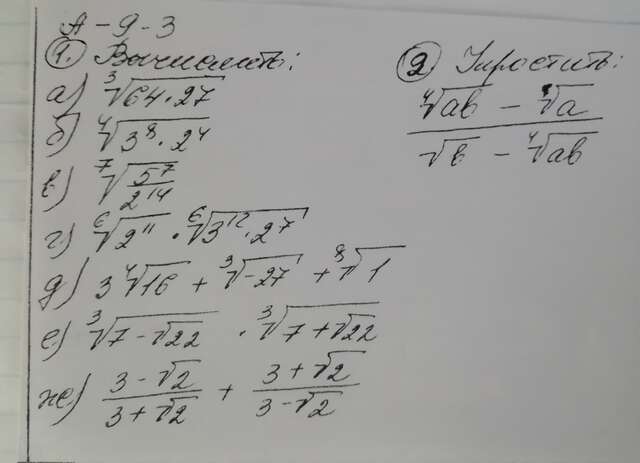 А-9-3
1. Вычислить:
а) ∛(64·27)
б) ∜(3⁸·2⁴)
в) ⁷√(5⁷/2¹⁴)
г) ⁶√(2¹¹) · ⁶√(3¹²·2⁷)
д) 3∜16 + ∛(-27) + ⁸√1
е) ∛(7-√22) · ∛(7+√22)
ж) (3-√2)/(3+√2) + (3+√2)/(3-√2)
2. Упростить:
(∜(ab) - √a)/(√b - ∜(ab))